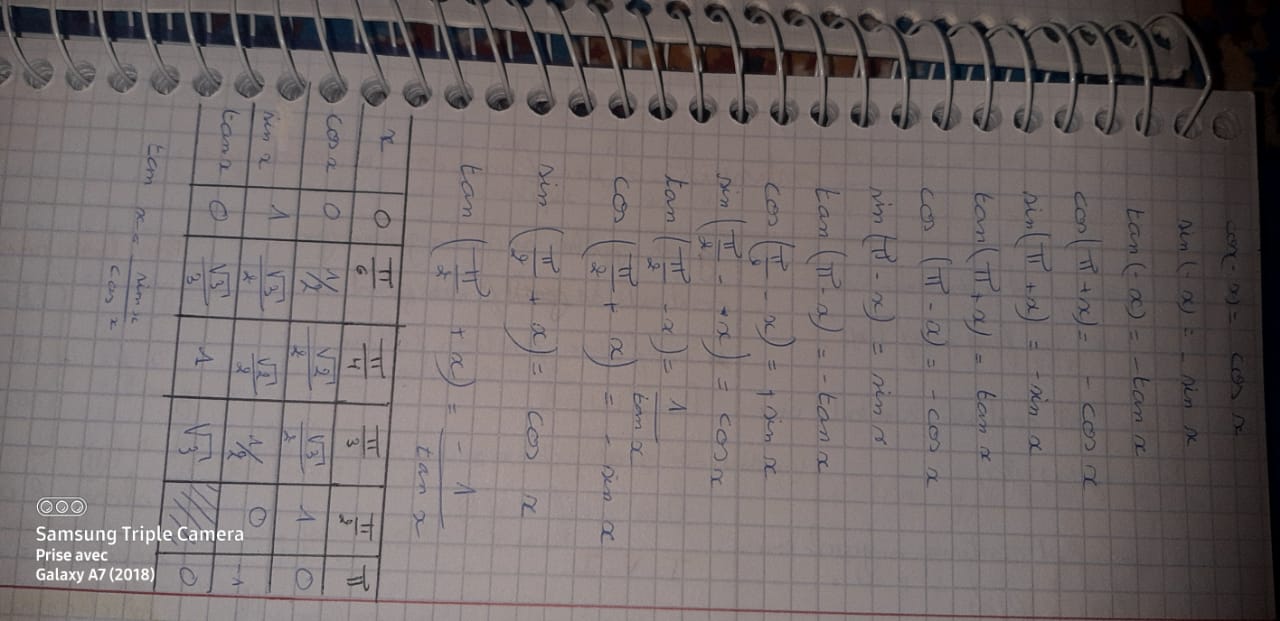 cos(-x) = cos x
sin(-x) = - sin x
tan(-x) = - tan x
cos(π + x) = - cos x
sin(π + x) = - sin x
tan(π + x) = tan x
cos(π - x) = - cos x
sin(π - x) = sin x
tan(π - x) = - tan x
cos(π/2 - x) = + sin x
sin(π/2 - x) = cos x
tan(π/2 - x) = 1/tan x
cos(π/2 + x) = - sin x
sin(π/2 + x) = cos x
tan(π/2 + x) = - 1/tan x
x 0 π/6 π/4 π/3 π/2 π
cos x 0 1/2 √2/2 √3/2 1 0
sin x 1 √3/2 √2/2 1/2 0 -1
tan x 0 √3/3 1 √3 0
tan x = sin x/cos x
Samsung Triple Camera
Prise avec
Galaxy A7 (2018)